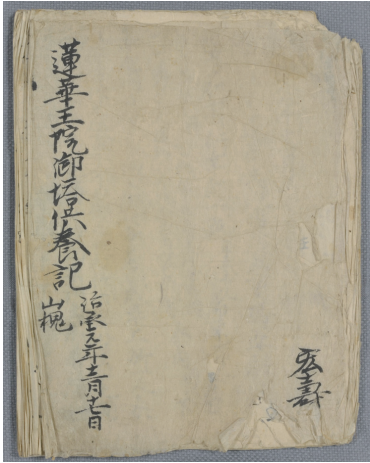 蓮華王院御塔供養記
治承元年十二月十七日
山槐